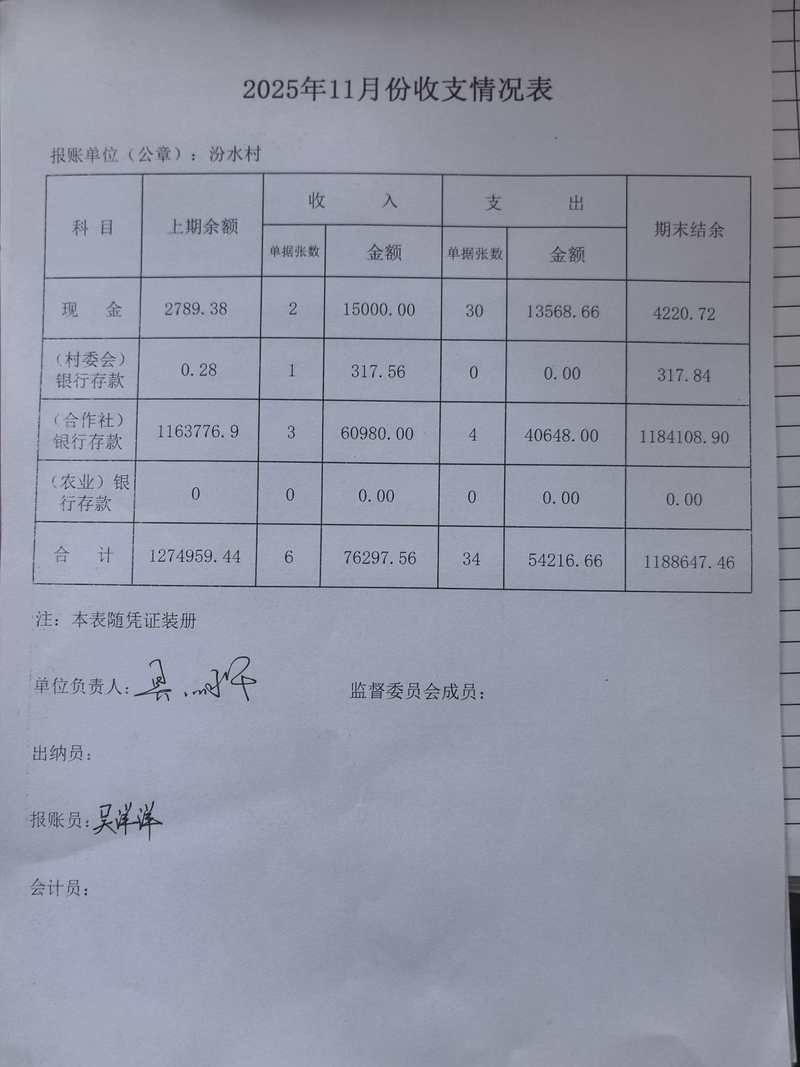 2025年11月份收支情况表
报账单位（公章）：汾水村
科 目 上期余额 收 入 支 出 期末结余
单据张数 金额 单据张数 金额
现 金 2789.38 2 15000.00 30 13568.66 4220.72
（村委会）银行存款 0.28 1 317.56 0 0.00 317.84
（合作社）银行存款 1163776.9 3 60980.00 4 40648.00 1184108.90
（农业）银行存款 0 0 0.00 0 0.00 0.00
合 计 1274959.44 6 76297.56 34 54216.66 1188647.46
注：本表随凭证装册
单位负责人：
监督委员会成员：
出纳员：
报账员：吴洋洋
会计员：